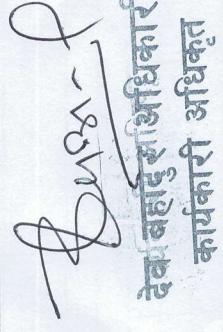 देव बहादुर अधिकारी
कार्यकारी अधिकृत